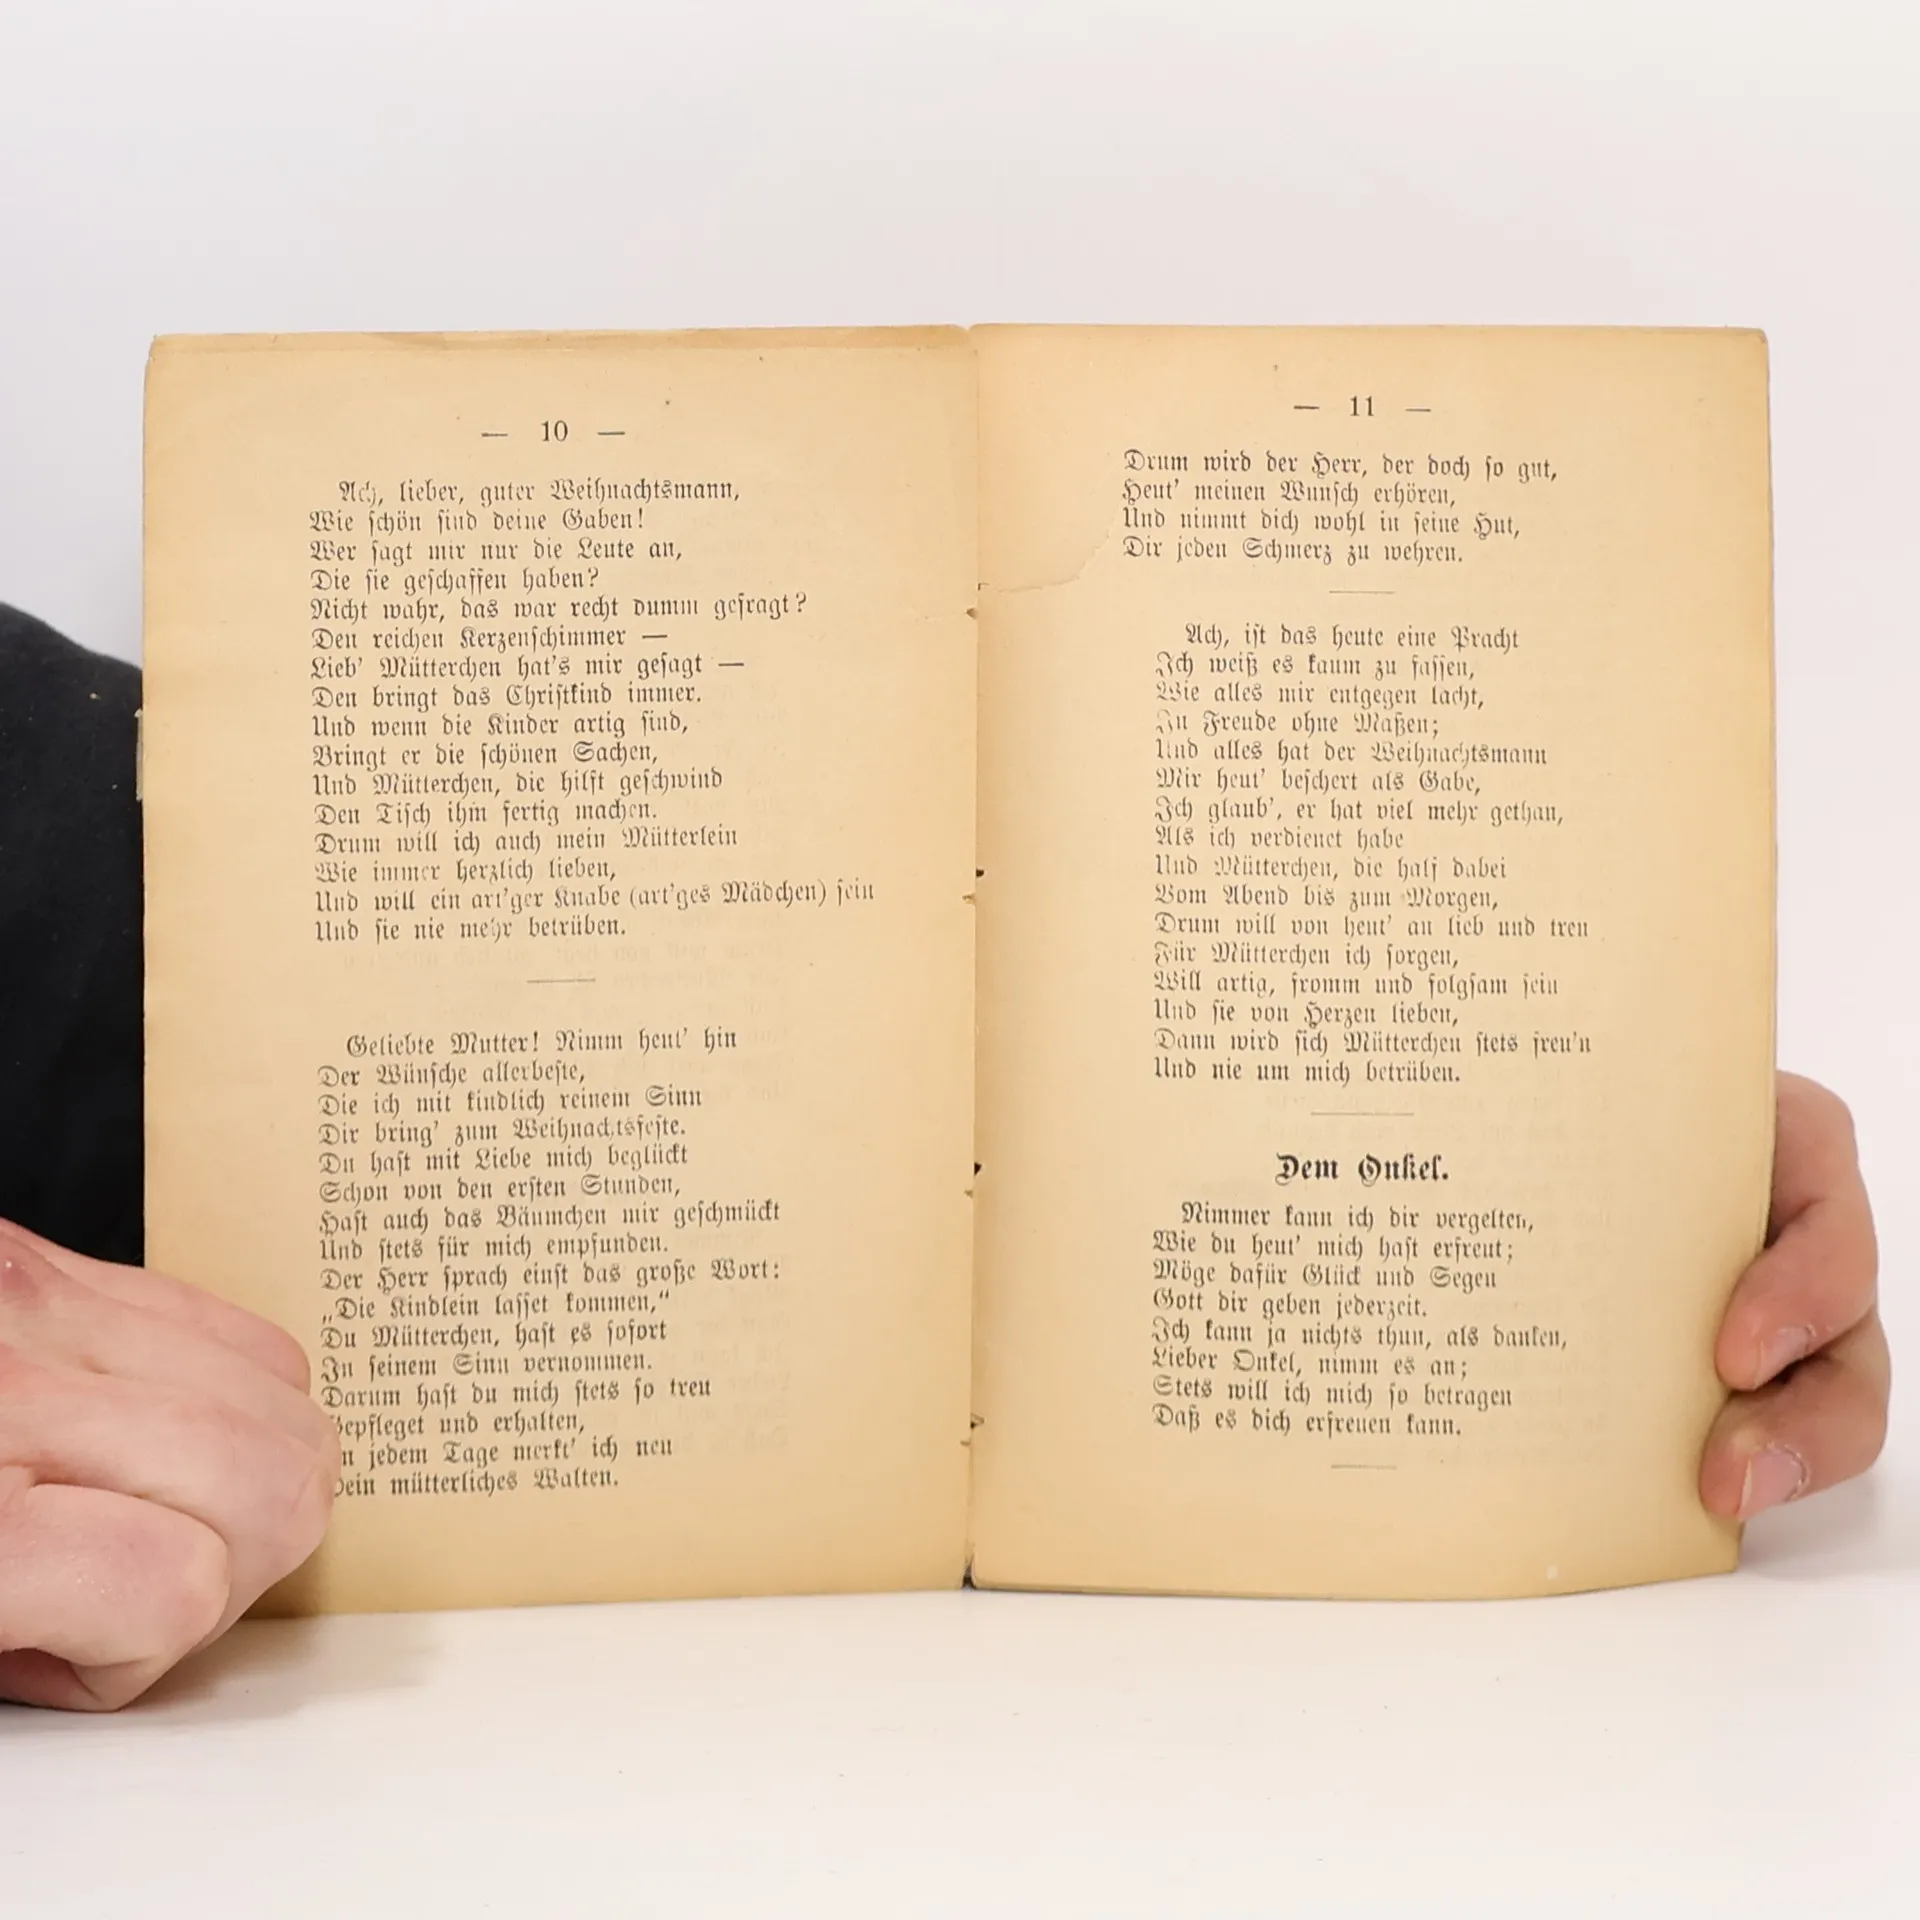 — 10 —
Ach, lieber, guter Weihnachtsmann,
Wie schön sind deine Gaben!
Wer sagt mir nur die Leute an,
Die sie geschaffen haben?
Nicht wahr, das war recht dumm gefragt?
Den reichen Kerzenschimmer —
Lieb' Mütterchen hat's mir gesagt —
Den bringt das Christkind immer.
Und wenn die Kinder artig sind,
Bringt er die schönen Sachen,
Und Mütterchen, die hilft geschwind
Den Tisch ihm fertig machen.
Drum will ich auch mein Mütterlein
Wie immer herzlich lieben,
Und will ein art'ger Knabe (art'ges Mädchen) sein
Und sie nie mehr betrüben.
Geliebte Mutter! Nimm heut' hin
Der Wünsche allerbeste,
Die ich mit kindlich reinem Sinn
Dir bring' zum Weihnachtsfeste.
Du hast mit Liebe mich beglückt
Schon von den ersten Stunden,
Hast auch das Bäumchen mir geschmückt
Und stets für mich empfunden.
Der Herr sprach einst das große Wort:
„Die Kindlein lasset kommen,“
Du Mütterchen, hast es sofort
In seinem Sinn vernommen.
Darum hast du mich stets so treu
Gepfleget und erhalten,
jedem Tage merkt' ich neu
Dein mütterliches Walten.
— 11 —
Drum wird der Herr, der doch so gut,
Heut' meinen Wunsch erhören,
Und nimmt dich wohl in seine Hut,
Dir jeden Schmerz zu wehren.
Ach, ist das heute eine Pracht
Ich weiß es kaum zu fassen,
Wie alles mir entgegen lacht,
In Freude ohne Maßen;
Und alles hat der Weihnachtsmann
Mir heut' beschert als Gabe,
Ich glaub', er hat viel mehr gethan,
Als ich verdienet habe
Und Mütterchen, die half dabei
Vom Abend bis zum Morgen,
Drum will von heut' an lieb und treu
Für Mütterchen ich sorgen,
Will artig, fromm und folgsam sein
Und sie von Herzen lieben,
Dann wird sich Mütterchen stets freu'n
Und nie um mich betrüben.
Dem Onkel.
Nimmer kann ich dir vergelten,
Wie du heut' mich hast erfreut;
Möge dafür Glück und Segen
Gott dir geben jederzeit.
Ich kann ja nichts thun, als danken,
Lieber Onkel, nimm es an;
Stets will ich mich so betragen
Daß es dich erfreuen kann.